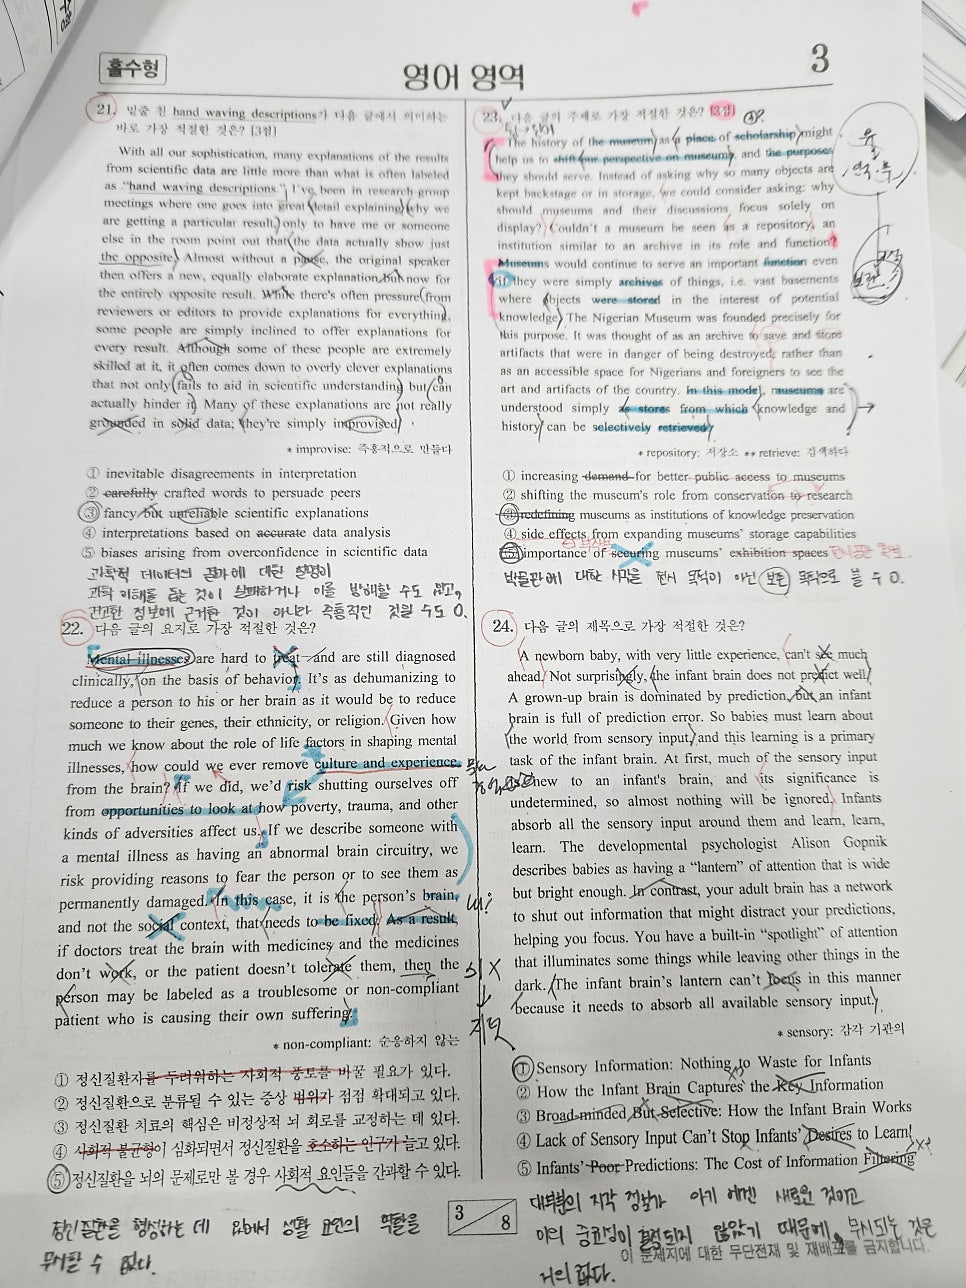 홀수형
영어 영역
3
21. 밑줄 친 hand waving descriptions가 다음 글에서 의미하는
바로 가장 적절한 것은? [3점]
With all our sophistication, many explanations of the results
from scientific data are little more than what is often labeled
as "hand waving descriptions." I've been in research group
meetings where one goes into great detail explaining why we
are getting a particular result, only to have me or someone
else in the room point out that the data actually show just
the opposite. Almost without a pause, the original speaker
then offers a new, equally elaborate explanation, but now for
the entirely opposite result. While there's often pressure from
reviewers or editors to provide explanations for everything,
some people are simply inclined to offer explanations for
every result. Although some of these people are extremely
skilled at it, it often comes down to overly clever explanations
that not only fails to aid in scientific understanding but can
actually hinder it. Many of these explanations are not really
grounded in solid data; they're simply improvised.
* improvise: 즉흥적으로 만들다
① inevitable disagreements in interpretation
② carefully crafted words to persuade peers
③ fancy but unreliable scientific explanations
④ interpretations based on accurate data analysis
⑤ biases arising from overconfidence in scientific data
과학적 데이터의 결과에 대한 설명이
과학 이해를 돕는 것이 실패하거나 이를 방해할 수도 있고,
견고한 정보에 근거한 것이 아니라 즉흥적인 것일 수도 O.
22. 다음 글의 요지로 가장 적절한 것은?
Mental illnesses are hard to treat and are still diagnosed
clinically, on the basis of behavior. It's as dehumanizing to
reduce a person to his or her brain as it would be to reduce
someone to their genes, their ethnicity, or religion. Given how
much we know about the role of life factors in shaping mental
illnesses, how could we ever remove culture and experience
from the brain? If we did, we'd risk shutting ourselves off
from opportunities to look at how poverty, trauma, and other
kinds of adversities affect us. If we describe someone with
a mental illness as having an abnormal brain circuitry, we
risk providing reasons to fear the person or to see them as
permanently damaged. In this case, it is the person's brain,
and not the social context, that needs to be fixed. As a result,
if doctors treat the brain with medicines and the medicines
don't work, or the patient doesn't tolerate them, then the
person may be labeled as a troublesome or non-compliant
patient who is causing their own suffering.
* non-compliant: 순응하지 않는
① 정신질환자를 두려워하는 사회적 풍토를 바꿀 필요가 있다.
② 정신질환으로 분류될 수 있는 증상 범위가 점점 확대되고 있다.
③ 정신질환 치료의 핵심은 비정상적 뇌 회로를 교정하는 데 있다.
④ 사회적 불균형이 심화되면서 정신질환을 호소하는 인구가 늘고 있다.
⑤ 정신질환을 뇌의 문제로만 볼 경우 사회적 요인들을 간과할 수 있다.
정신질환을 형성하는 데 있어서 생활 요인의 역할을
무시할 수 없다.
23. 다음 글의 주제로 가장 적절한 것은? [3점]
The history of the museum as a place of scholarship might
help us to shift our perspective on museums and the purposes
they should serve. Instead of asking why so many objects are
kept backstage or in storage, we could consider asking: why
should museums and their discussions focus solely on
display? Couldn't a museum be seen as a repository, an
institution similar to an archive in its role and function?
Museums would continue to serve an important function even
if they were simply archives of things, i.e. vast basements
where objects were stored in the interest of potential
knowledge. The Nigerian Museum was founded precisely for
this purpose. It was thought of as an archive to save and store
artifacts that were in danger of being destroyed, rather than
as an accessible space for Nigerians and foreigners to see the
art and artifacts of the country. In this model, museums are
understood simply as stores from which knowledge and
history can be selectively retrieved.
* repository: 저장소 ** retrieve: 검색하다
① increasing demand for better public access to museums
② shifting the museum's role from conservation to research
③ redefining museums as institutions of knowledge preservation
④ side effects from expanding museums' storage capabilities
⑤ importance of securing museums' exhibition spaces
박물관에 대한 시각을 전시 목적이 아닌 보존 목적으로 볼 수 O.
24. 다음 글의 제목으로 가장 적절한 것은?
A newborn baby, with very little experience, can't see much
ahead. Not surprisingly, the infant brain does not predict well.
A grown-up brain is dominated by prediction, but an infant
brain is full of prediction error. So babies must learn about
the world from sensory input, and this learning is a primary
task of the infant brain. At first, much of the sensory input
is new to an infant's brain, and its significance is
undetermined, so almost nothing will be ignored. Infants
absorb all the sensory input around them and learn, learn,
learn. The developmental psychologist Alison Gopnik
describes babies as having a "lantern" of attention that is wide
but bright enough. In contrast, your adult brain has a network
to shut out information that might distract your predictions,
helping you focus. You have a built-in "spotlight" of attention
that illuminates some things while leaving other things in the
dark. The infant brain's lantern can't focus in this manner
because it needs to absorb all available sensory input.
* sensory: 감각 기관의
① Sensory Information: Nothing to Waste for Infants
② How the Infant Brain Captures the Key Information
③ Broad-minded But Selective: How the Infant Brain Works
④ Lack of Sensory Input Can't Stop Infants' Desires to Learn!
⑤ Infants' Poor Predictions: The Cost of Information Filtering
대부분의 지각 정보가 아기에겐 새로운 것이고
이의 중요성이 결정되지 않았기 때문에, 무시되는 것은
거의 없다.
3
8
이 문제지에 대한 무단전재 및 재배포를 금지합니다.